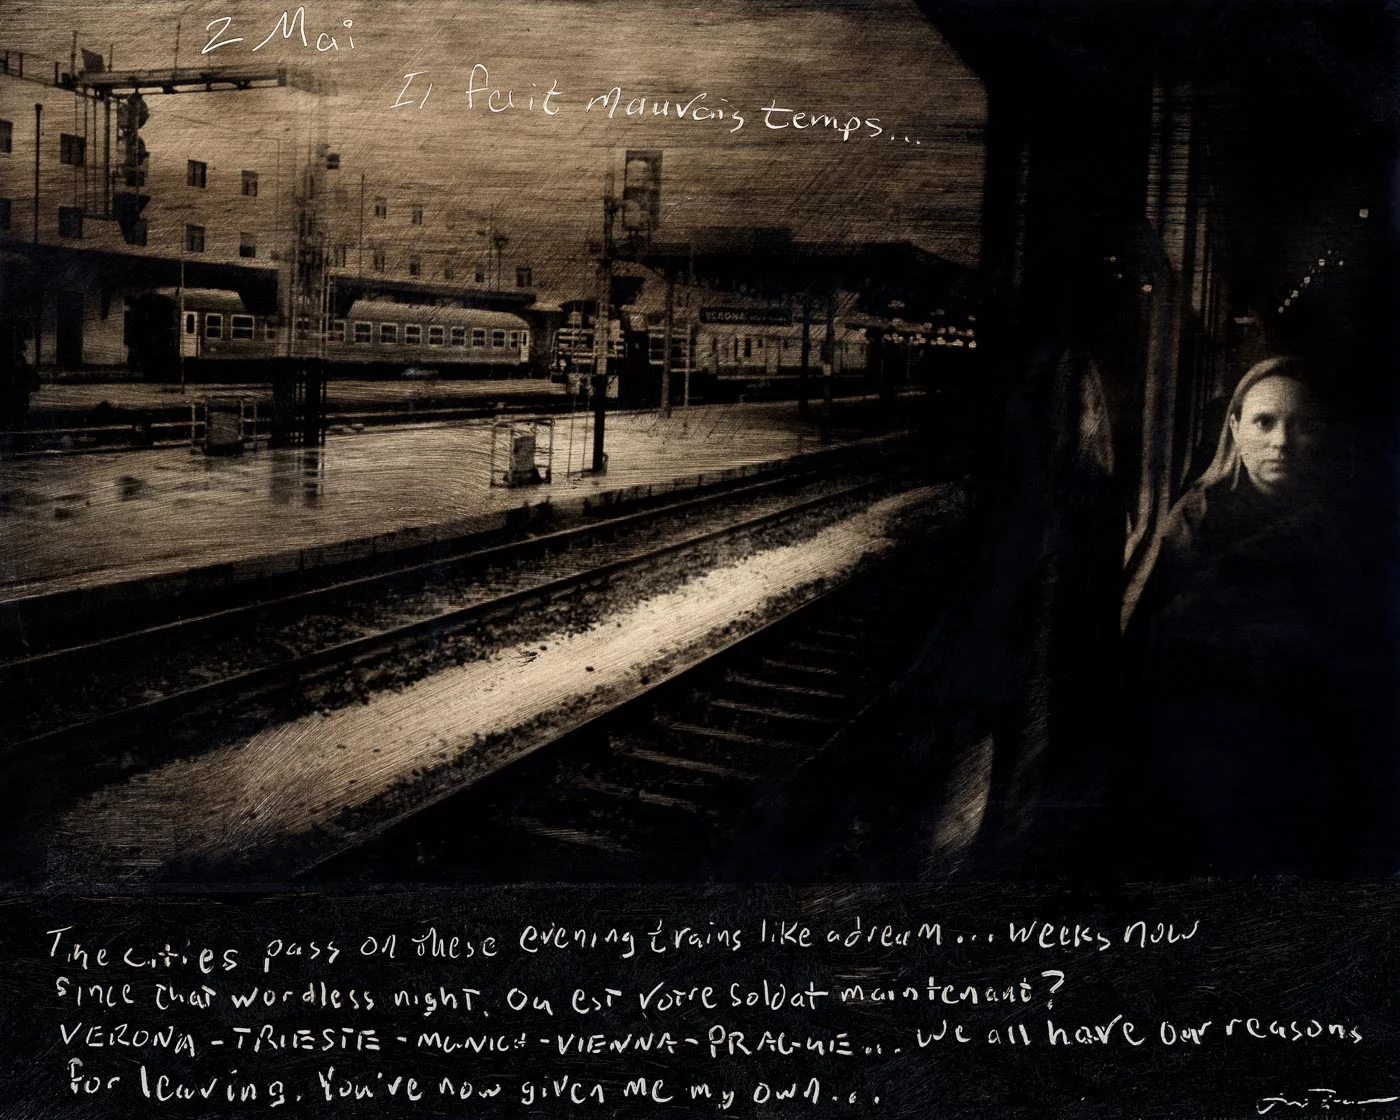 2 Mai
Il fait mauvais temps...
VERONA
The cities pass on these evening trains like a dream... weeks now
since that wordless night. Ou est votre soldat maintenant?
VERONA - TRIESTE - MUNICH - VIENNA - PRAGUE... we all have our reasons
for leaving. You've now given me my own...